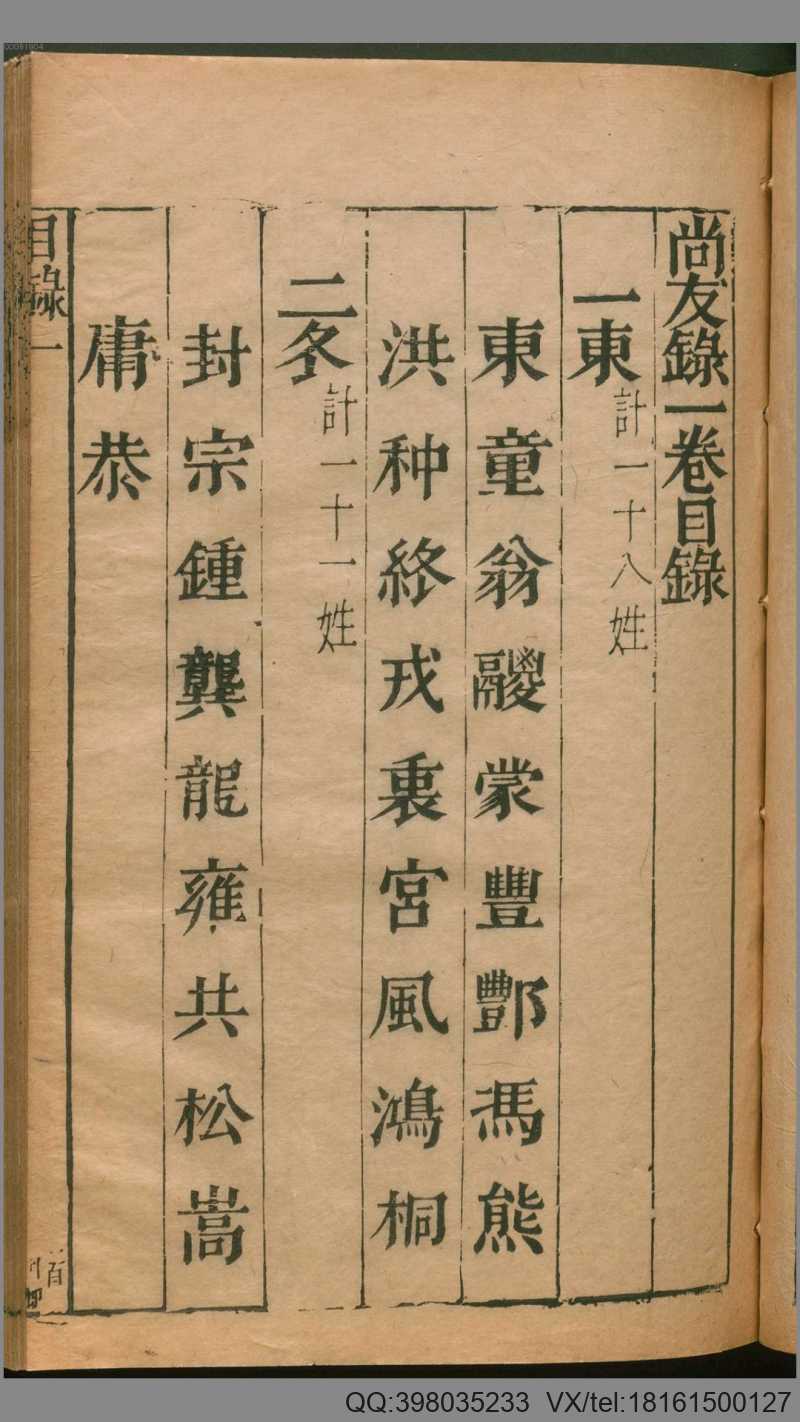 尚友錄一卷目錄
一東計一十八姓
東童翁鬷蒙豐酆馮熊
洪种終戎裏宮風鴻桐
二冬計一十一姓
封宗鍾龔龍雍共松嵩
庸恭
目錄一
百
QQ:398035233 VX/tel:18161500127